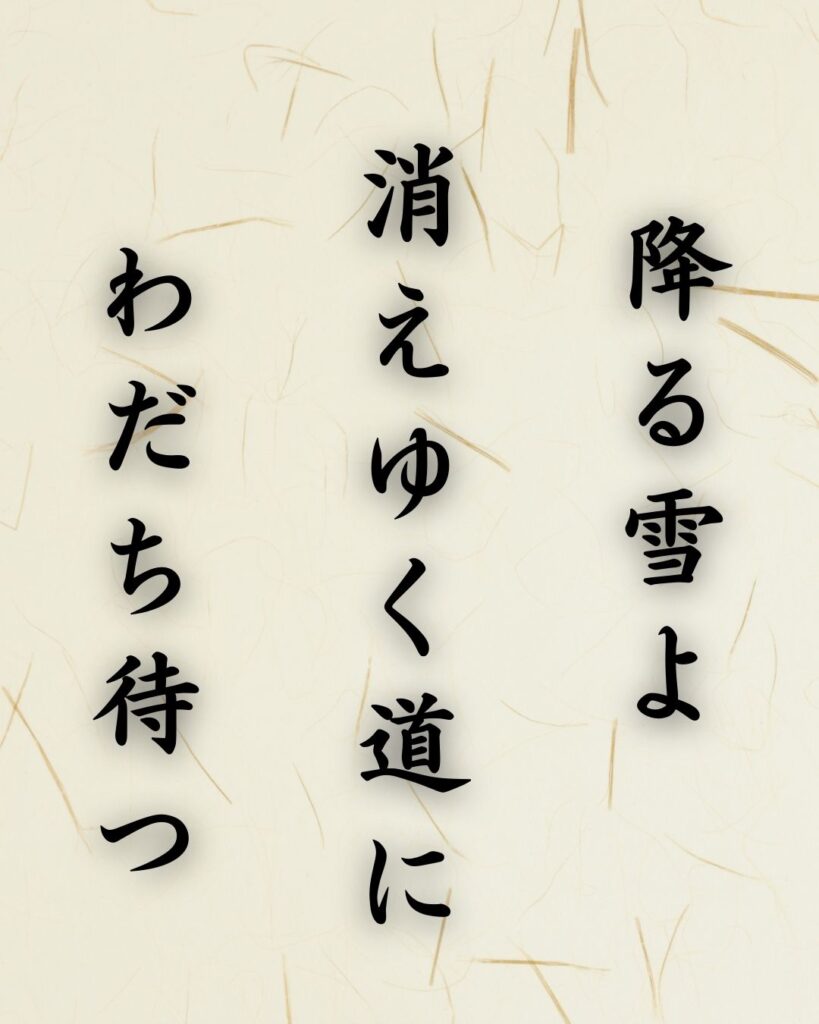 降る雪よ
消えゆく道に
わだち待つ